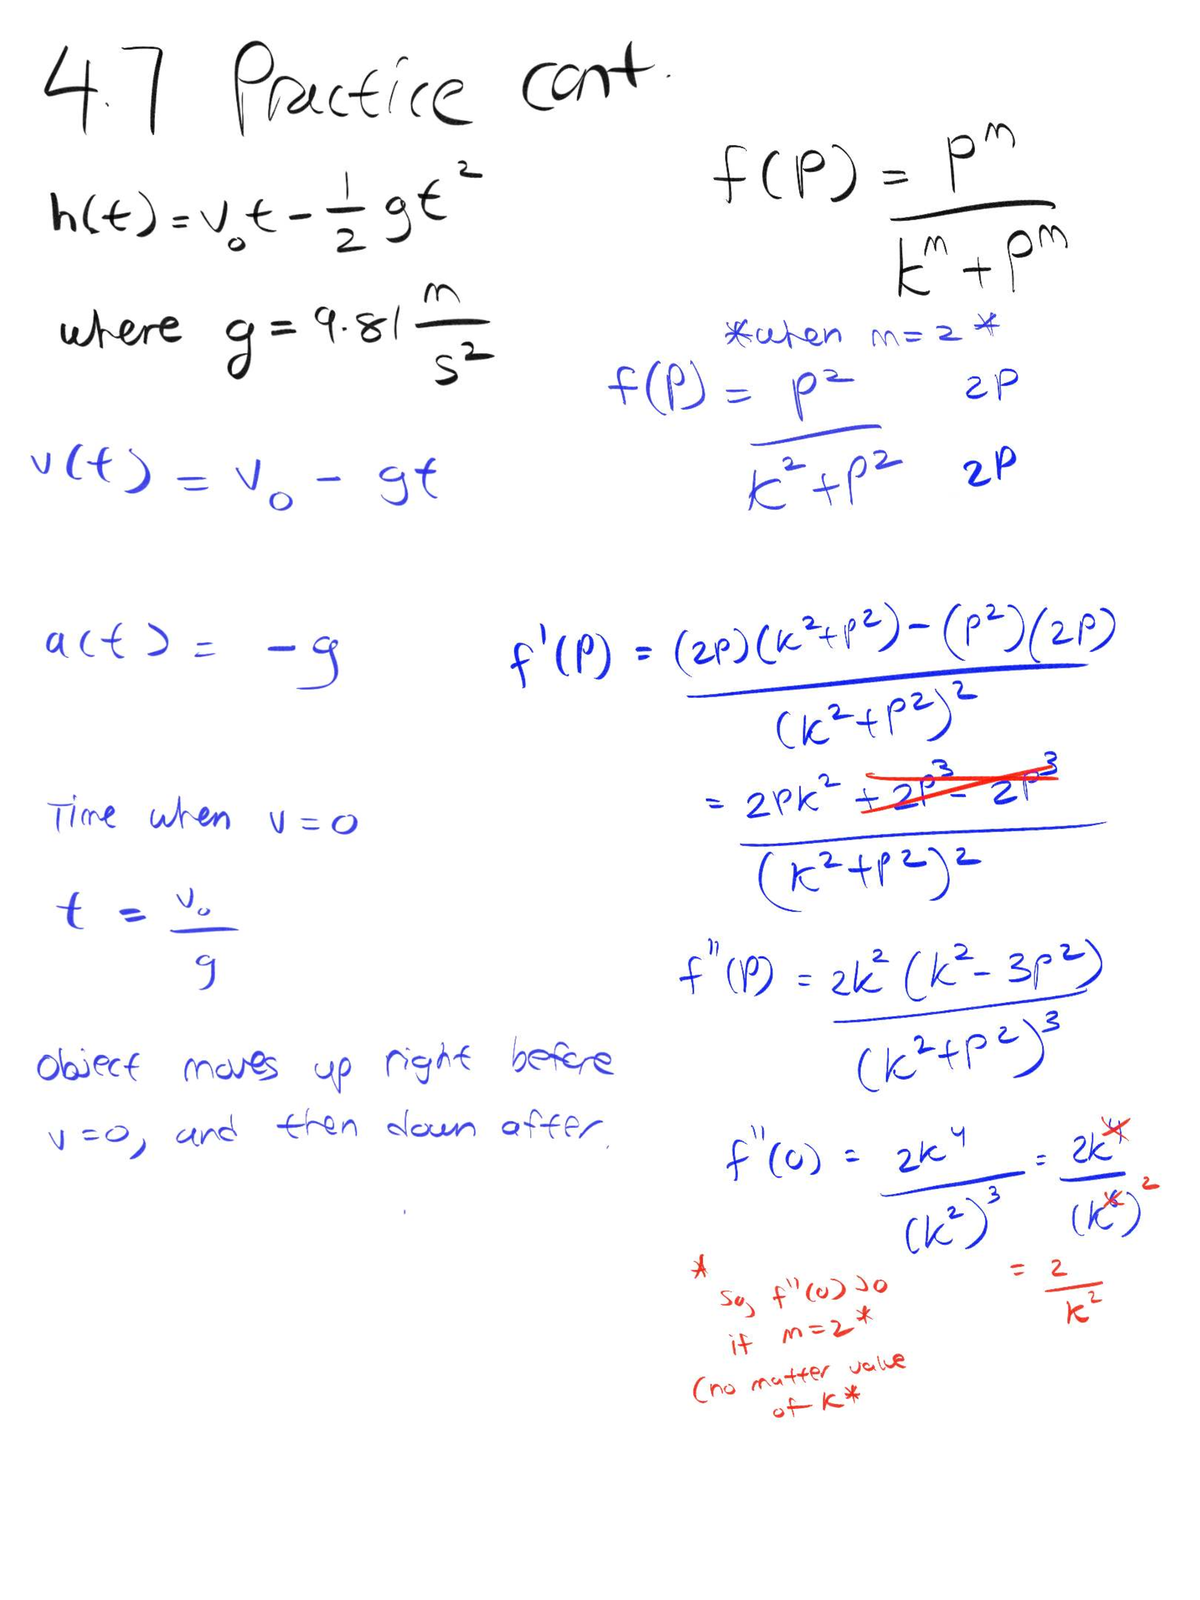 4.7 Practice cont.
h(t) = v₀t - 1/2 gt²
where g = 9.81 m/s²
v(t) = v₀ - gt
a(t) = -g
Time when v=0
t = v₀/g
Object moves up right before
v=0, and then down after.
f(P) = P^m/(k^m + P^m)
*when m=2*
f(P) = P²/(k²+P²) 2P 2P
f'(P) = (2P)(k²+P²)-(P²)(2P)/(k²+P²)²
= 2Pk² +2P³ - 2P³/(k²+P²)²
f''(P) = 2k²(k²-3P²)/(k²+P²)³
f''(0) = 2k⁴/(k²)³ = 2k⁴/(k⁶) 2
= 2/k²
*
So, f''(0)>0
if m=2*
(no matter value
of k*